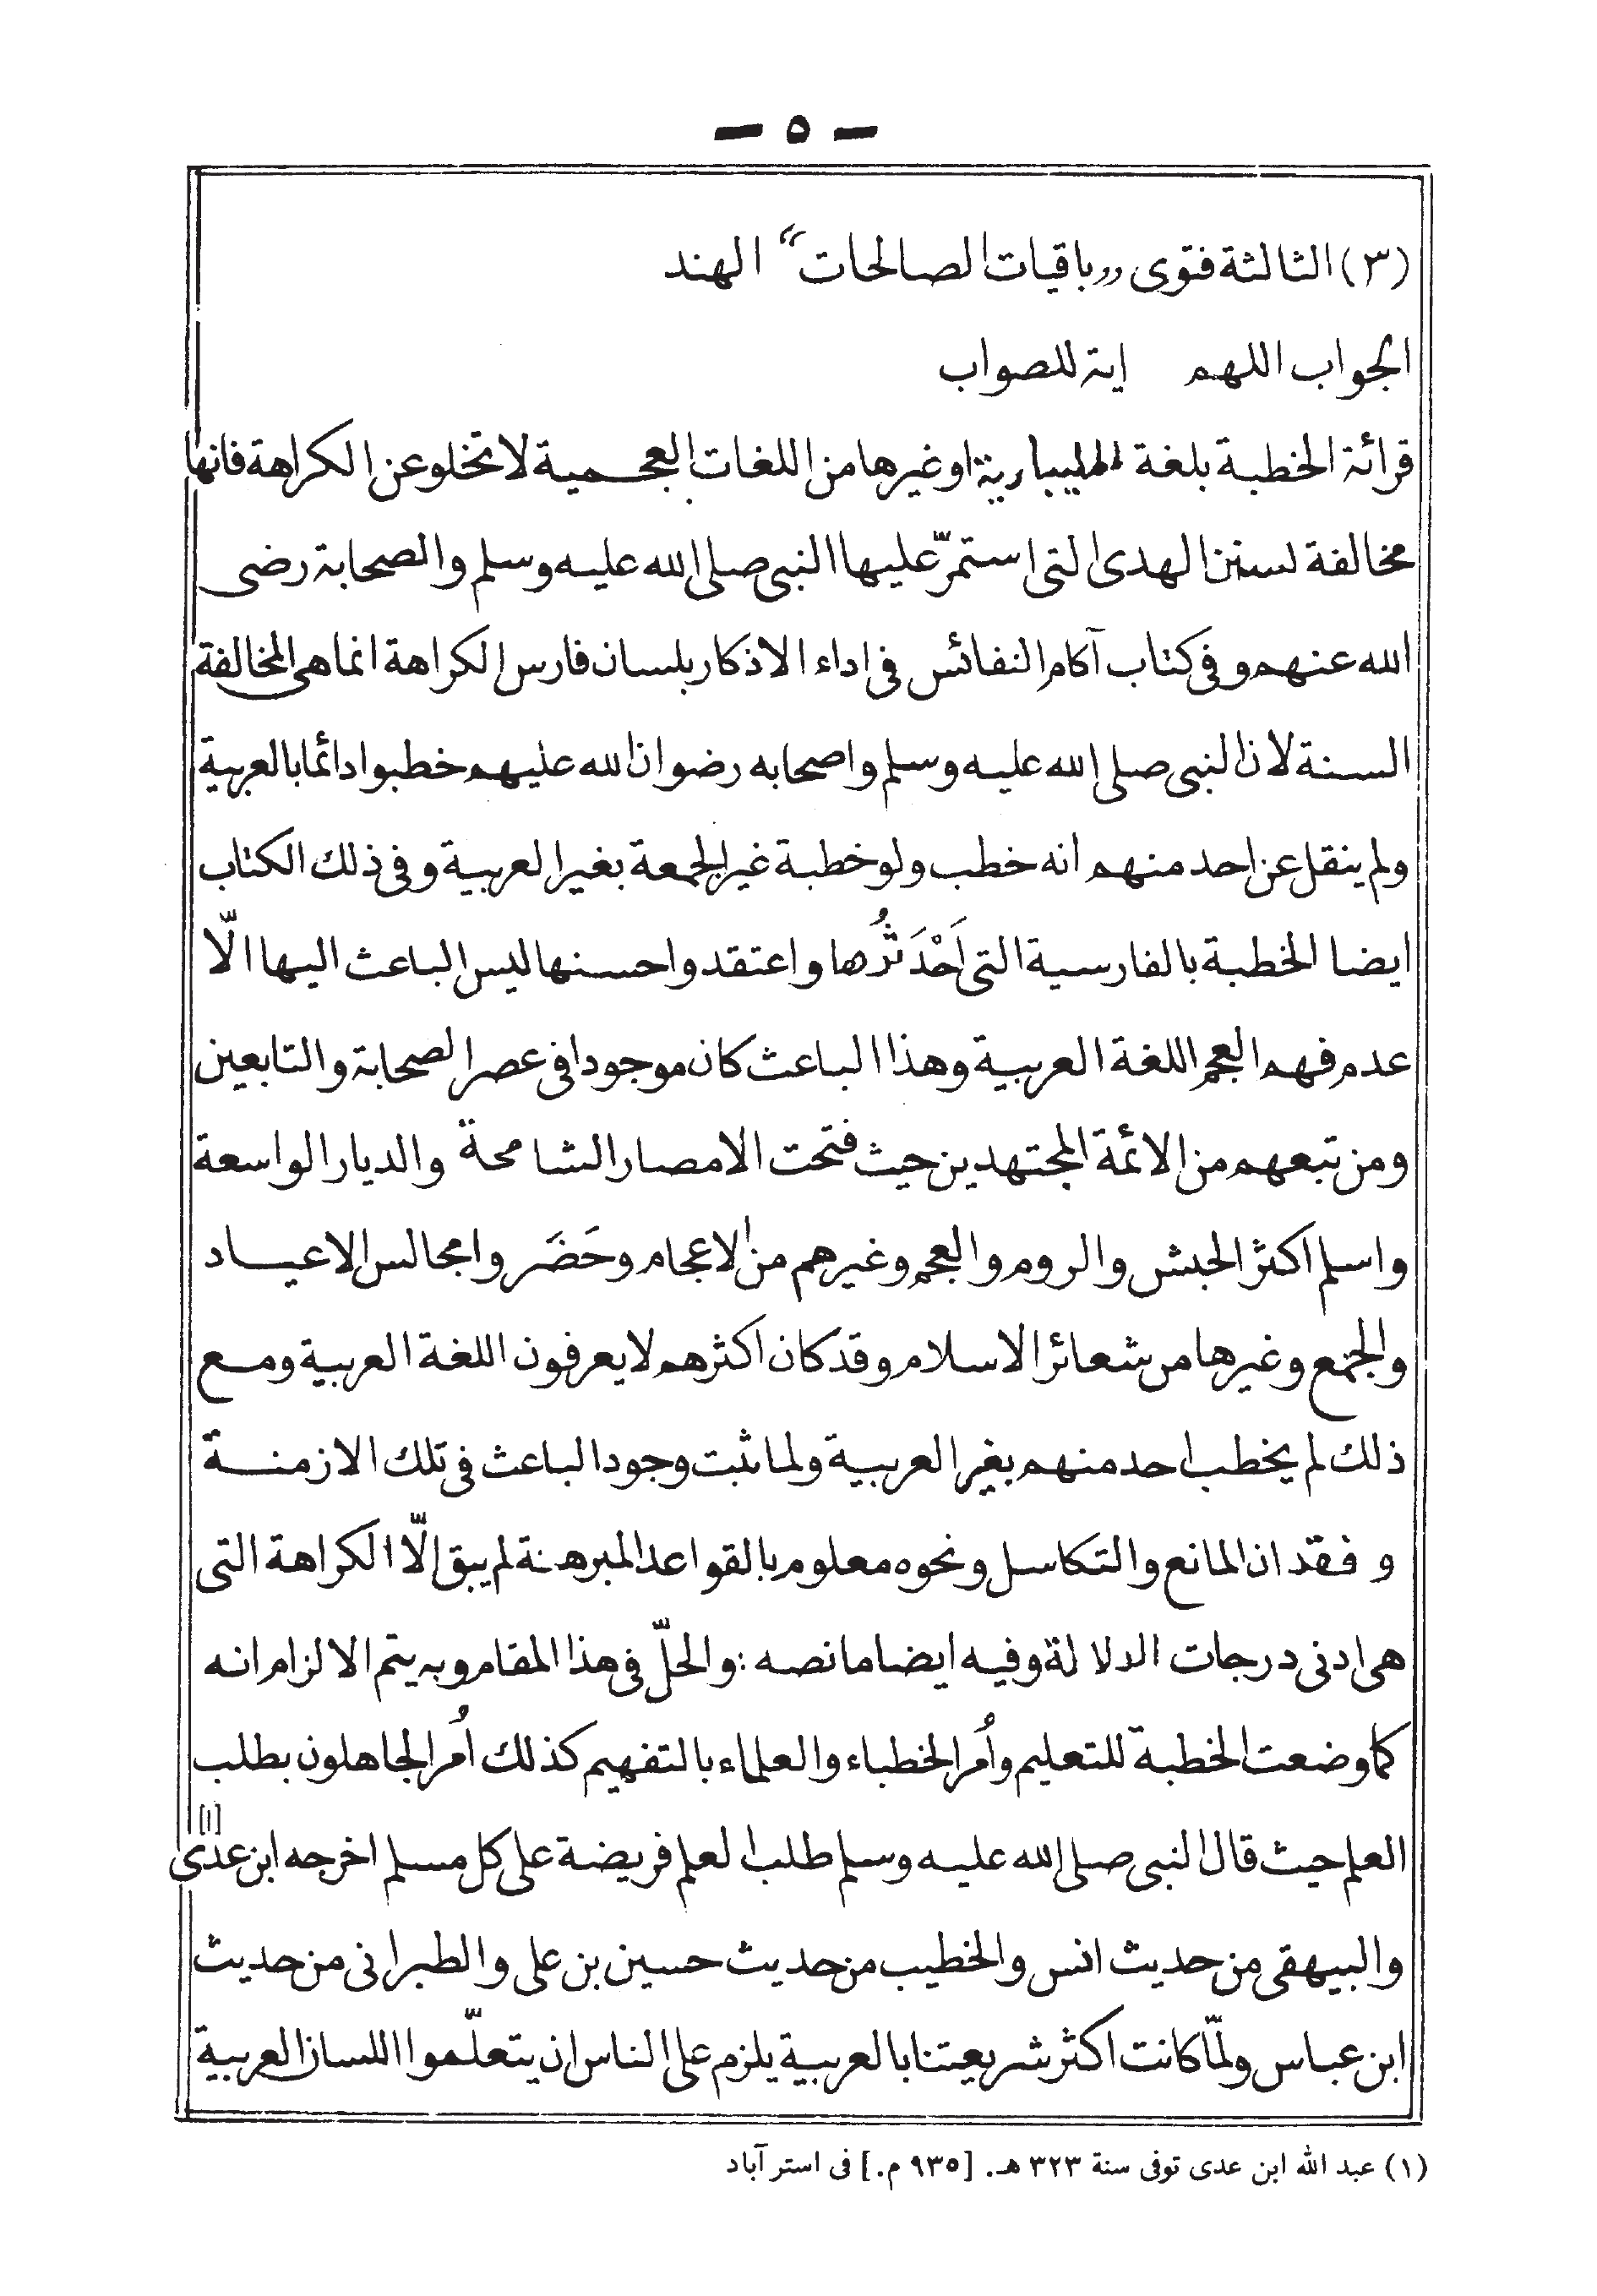 — ٥ —
(٣) الثالثة فتوى ,,باقيات الصالحات“ الهند
الجواب اللهم اية للصواب
قرائة الخطبة بلغة المليبارية او غيرها من اللغات العجمية لا تخلو عن الكراهة فانها
مخالفة لسنن الهدى التى استمرّ عليها النبى صلى الله عليه وسلم والصحابة رضى
الله عنهم و فى كتاب آكام النفائس فى اداء الاذكار بلسان فارس الكراهة انما هى المخالفة
السنة لان النبى صلى الله عليه وسلم واصحابه رضوان الله عليهم خطبوا دائما بالعربية
ولم ينقل عن احد منهم انه خطب ولو خطبة غير الجمعة بغير العربية و فى ذلك الكتاب
ايضا الخطبة بالفارسية التى اَحْدَثُرُها واعتقدوا حسنها ليس الباعث اليها الّا
عدم فهم العجم اللغة العربية وهذا الباعث كان موجودا فى عصر الصحابة والتابعين
ومن تبعهم من الائمة المجتهدين حيث فتحت الامصار الشامخة والديار الواسعة
واسلم اكثر الحبش والروم والعجم وغيرهم من الاعجام وحَضَروا مجالس الاعياد
والجمع وغيرها من شعائر الاسلام وقد كان اكثرهم لا يعرفون اللغة العربية ومع
ذلك لم يخطب احد منهم بغير العربية ولما ثبت وجود الباعث فى تلك الازمنة
و فقدان المانع والتكاسل ونحوه معلوم بالقواعد المبرهنة لم يبق الّا الكراهة التى
هى ادنى درجات الدلالة وفيه ايضا ما نصه : والحلّ فى هذا المقام وبه يتم الالزام انه
كما وضعت الخطبة للتعليم واُمر الخطباء والعلماء بالتفهيم كذلك اُمر الجاهلون بطلب
العلم حيث قال النبى صلى الله عليه وسلم طلب العلم فريضة على كل مسلم اخرجه ابن عدى [١]
والبيهقى من حديث انس والخطيب من حديث حسين بن على والطبرانى من حديث
ابن عباس ولمّا كانت اكثر شريعتنا بالعربية يلزم على الناس ان يتعلّموا اللسان العربية
(١) عبد الله ابن عدى توفى سنة ٣٢٣ هـ. [٩٣٥ م.] فى استر آباد